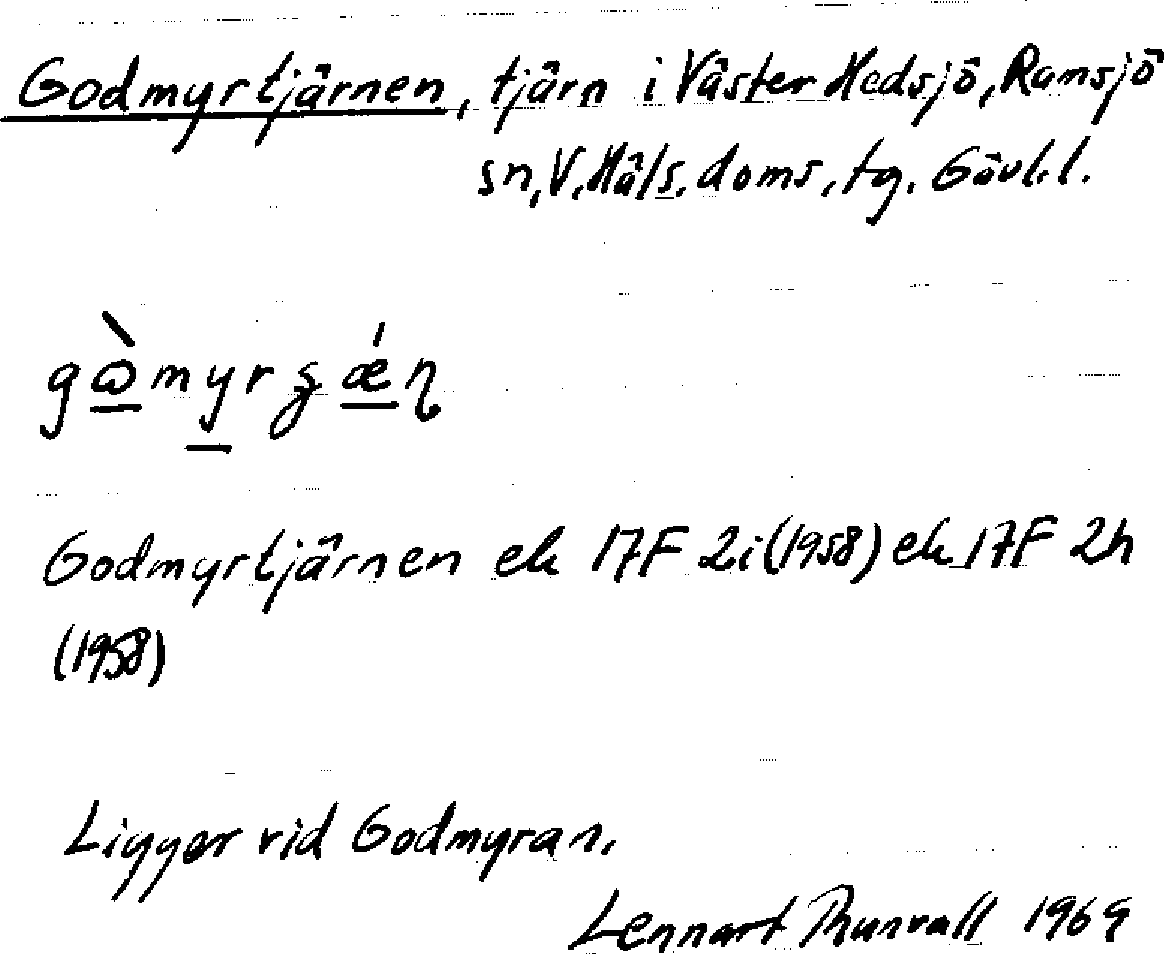 Godmyrtjärnen, tjärn i Väster Hedsjö, Ramsjö
sn, V. Häls. doms. tg. Gävl.l.
Godmyrtjärnen ek 17F 2i (1958) ek 17F 2h
(1958)
Ligger vid Godmyran.
Lennart Thunvall 1969